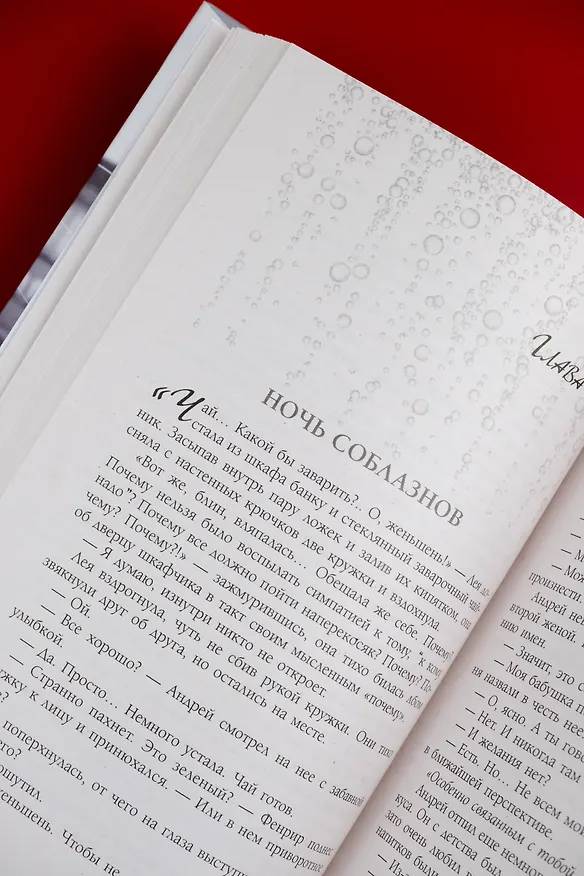 ГЛАВА
НОЧЬ СОБЛАЗНОВ
«Чай... Какой бы заварить?.. О, женьшень!» — Лея до-
стала из шкафа банку и стеклянный заварочный чай-
ник. Засыпав внутрь пару ложек и залив их кипятком, она
сняла с настенных крючков две кружки и вздохнула.
«Вот же, блин, вляпалась... Обещала же себе. Почему?
Почему нельзя было воспылать симпатией к тому, "к кому
надо"? Почему все должно пойти наперекосяк? Почему? По-
чему? Почему?!» — зажмурившись, она тихо билась лбом
об дверцу шкафчика в такт своим мысленным «почему».
— Я думаю, изнутри никто не откроет.
Лея вздрогнула, чуть не сбив рукой кружки. Они тихо
звякнули друг об друга, но остались на месте.
— Ой.
— Все хорошо? — Андрей смотрел на нее с забавной
улыбкой.
— Да. Просто... Немного устала. Чай готов.
— Странно пахнет. Это зеленый? — Фенрир поднес
кружку к лицу и принюхался. — Или в нем приворотное
поперхнулась, от чего на глаза выступ
женьшень. Чтобы не
— Мо
произнести.
Андрей нен
второй женой. И
нию имен.
— Значит, это С
— Моя бабушка п
ня назвали в честь нее
— О, ясно. А ты гово
— Нет. И никогда там
— И желания нет?
— Есть, Но... Не всем мо
в ближайшей перспективе.
«Особенно связанным с тобой
Андрей отпил еще немног
куса. Он с детства был
зато очень любил в
напитков были
— Из-